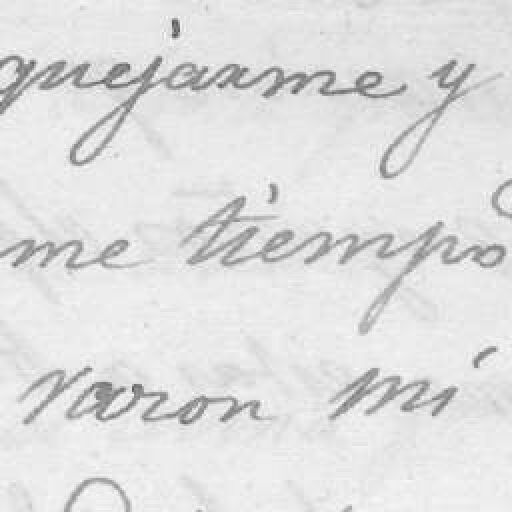 quejarme y
me tiempo
varon mi